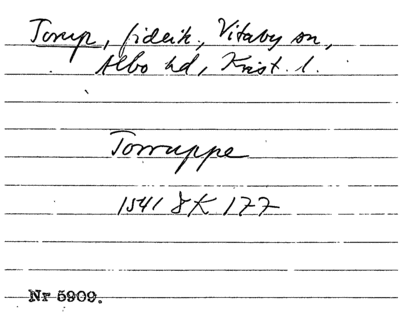 Torup, fideik., Vitaby sn,
Albo hd, Krist. l.
Torruppe
1541 8K 177
Nr 5909.